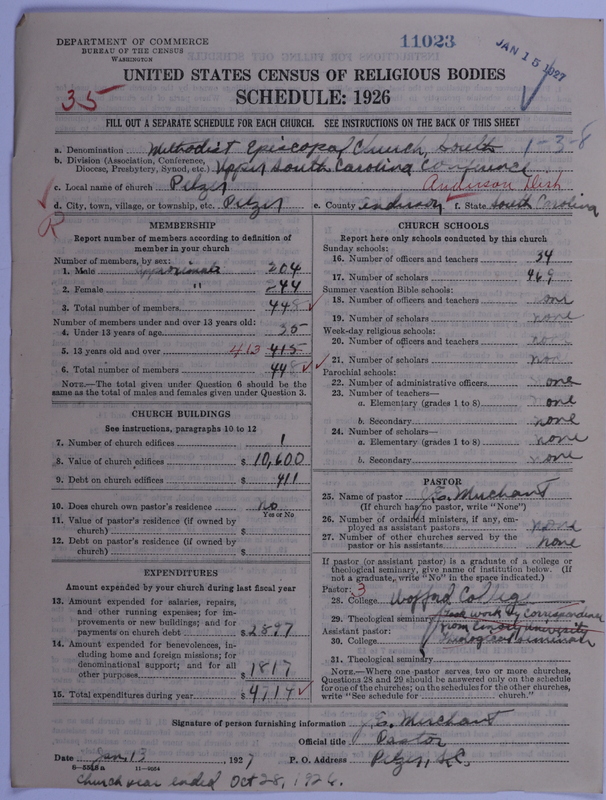 DEPARTMENT OF COMMERCE
BUREAU OF THE CENSUS
WASHINGTON
11023
JAN 15 1927
UNITED STATES CENSUS OF RELIGIOUS BODIES
35
SCHEDULE: 1926
FILL OUT A SEPARATE SCHEDULE FOR EACH CHURCH. SEE INSTRUCTIONS ON THE BACK OF THIS SHEET
a. Denomination Methodist Episcopal Church, South 1-3-8
b. Division (Association, Conference, Diocese, Presbytery, Synod, etc.) Upper South Carolina Conference
c. Local name of church Pelzer Anderson Dist
d. City, town, village, or township, etc. Pelzer e. County Anderson f. State South Carolina
R
MEMBERSHIP
Report number of members according to definition of
member in your church
Number of members, by sex:
1. Male approximate 204
2. Female " 244
3. Total number of members 448
Number of members under and over 13 years old:
4. Under 13 years of age 35
5. 13 years old and over 413 415
6. Total number of members 448
NOTE.—The total given under Question 6 should be the
same as the total of males and females given under Question 3.
CHURCH BUILDINGS
See instructions, paragraphs 10 to 12
7. Number of church edifices 1
8. Value of church edifices $ 10,600
9. Debt on church edifices $ 411
10. Does church own pastor's residence? no
Yes or No
11. Value of pastor's residence (if owned by
church) $
12. Debt on pastor's residence (if owned by
church) $
EXPENDITURES
Amount expended by your church during last fiscal year
13. Amount expended for salaries, repairs,
and other running expenses; for im-
provements or new buildings; and for
payments on church debt $ 2897
14. Amount expended for benevolences, in-
cluding home and foreign missions; for
denominational support; and for all
other purposes $ 1817
15. Total expenditures during year $ 4717
CHURCH SCHOOLS
Report here only schools conducted by this church
Sunday schools:
16. Number of officers and teachers 34
17. Number of scholars 469
Summer vacation Bible schools:
18. Number of officers and teachers none
19. Number of scholars none
Week-day religious schools:
20. Number of officers and teachers none
21. Number of scholars none
Parochial schools:
22. Number of administrative officers none
23. Number of teachers—
a. Elementary (grades 1 to 8) none
b. Secondary none
24. Number of scholars—
a. Elementary (grades 1 to 8) none
b. Secondary none
PASTOR
25. Name of pastor J. E. Merchant
(If church has no pastor, write "None")
26. Number of ordained ministers, if any, em-
ployed as assistant pastors none
27. Number of other churches served by the
pastor or his assistants none
If pastor (or assistant pastor) is a graduate of a college or
theological seminary, give name of institution below. (If
not a graduate, write "No" in the space indicated.)
Pastor: 3
28. College Wofford College
29. Theological seminary work by Correspondence
from Emory University
Assistant pastor:
30. College Theological Seminary
31. Theological seminary
NOTE.—Where one pastor serves two or more churches,
Questions 28 and 29 should be answered only on the schedule
for one of the churches; on the schedules for the other churches,
write "See schedule for church."
Signature of person furnishing information J. E. Merchant
Official title Pastor
Date Jan 13 1927 P. O. Address Pelzer, S.C.
6-5515a 11-9054
Church year ended Oct 28, 1926.